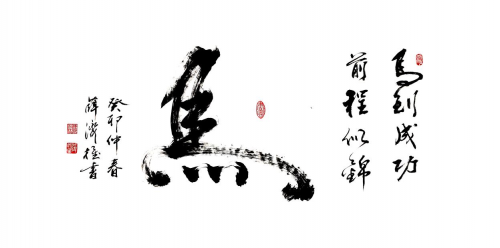 馬到成功
前程似錦
馬
癸卯仲春
薛濟槿書